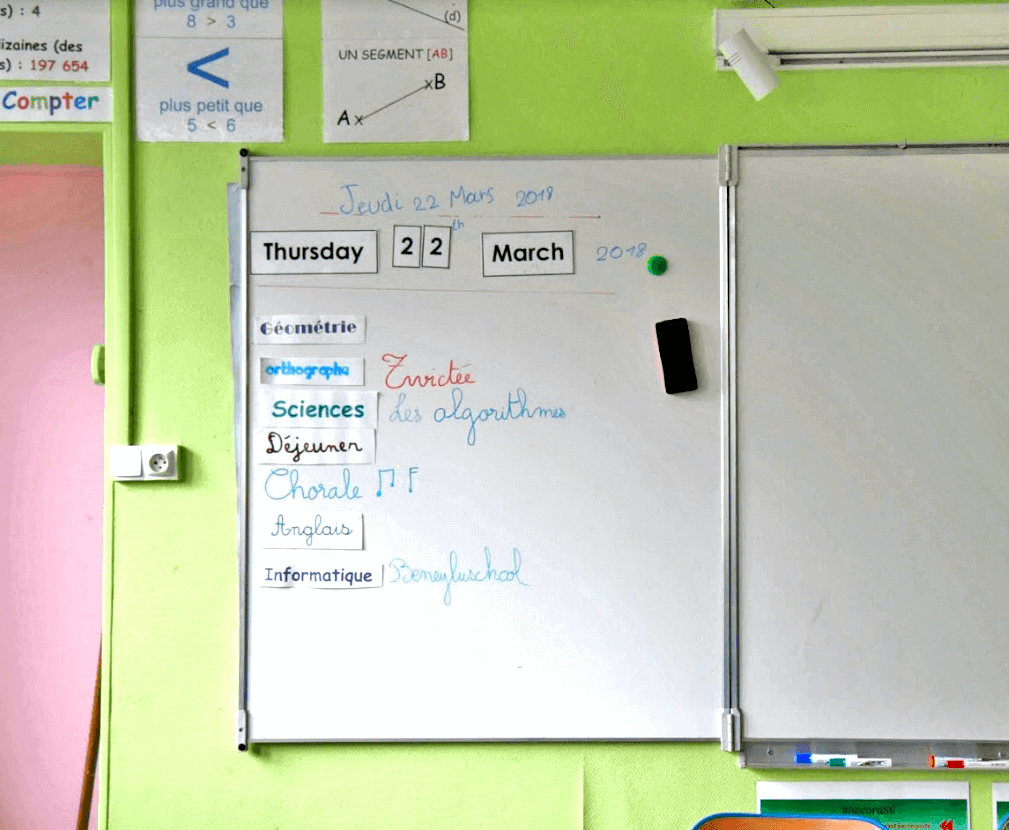 s) : 4
izaines (des
s) : 197 654
Compter
plus grand que
8 > 3
<
plus petit que
5 < 6
(d)
UN SEGMENT [AB]
A x x B
Jeudi 22 Mars 2018
Thursday 22 th March 2018
Géométrie
orthographe
Sciences Les algorithmes
Déjeuner
Chorale
Anglais
Informatique Beneyluschool